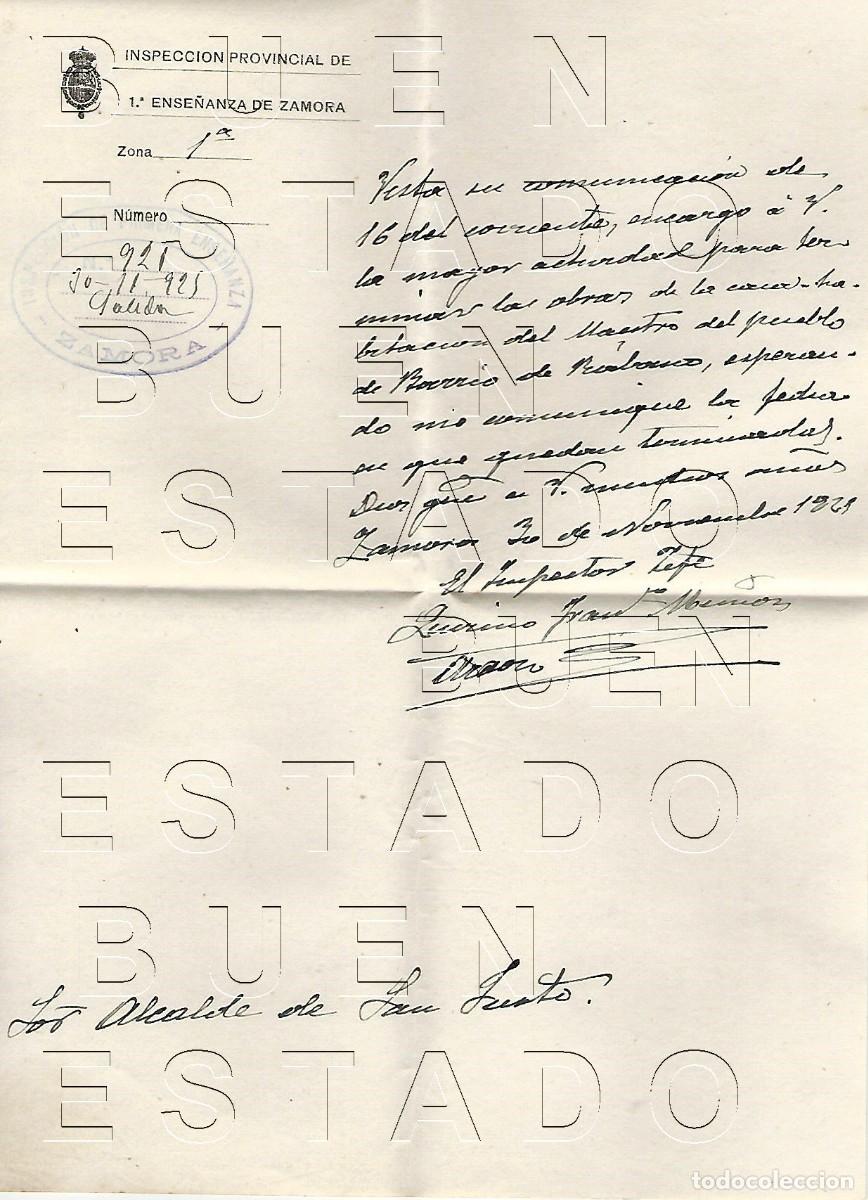 INSPECCION PROVINCIAL DE
1.ª ENSEÑANZA DE ZAMORA
Zona 1ª
Número
INSPECCIÓN DE PRIMERA ENSEÑANZA
921
30-11-925
Salida
ZAMORA
Vista su comunicación de
16 del corriente, encargo á V.
la mayor actividad para ter
minar las obras de la casa-ha-
bitacion del Maestro del pueblo
de Barrio de Rábano, esperan-
do me comunique la fecha
en que quedan terminadas.
Dios gue a V. muchos años
Zamora 30 de Noviembre 1925
El Inspector Jefe
Quirino Franco Muñoz
Sor Alcalde de San Justo.
BUEN
ESTADO
BUEN
ESTADO
BUEN
ESTADO
BUEN
ESTADO
todocoleccion